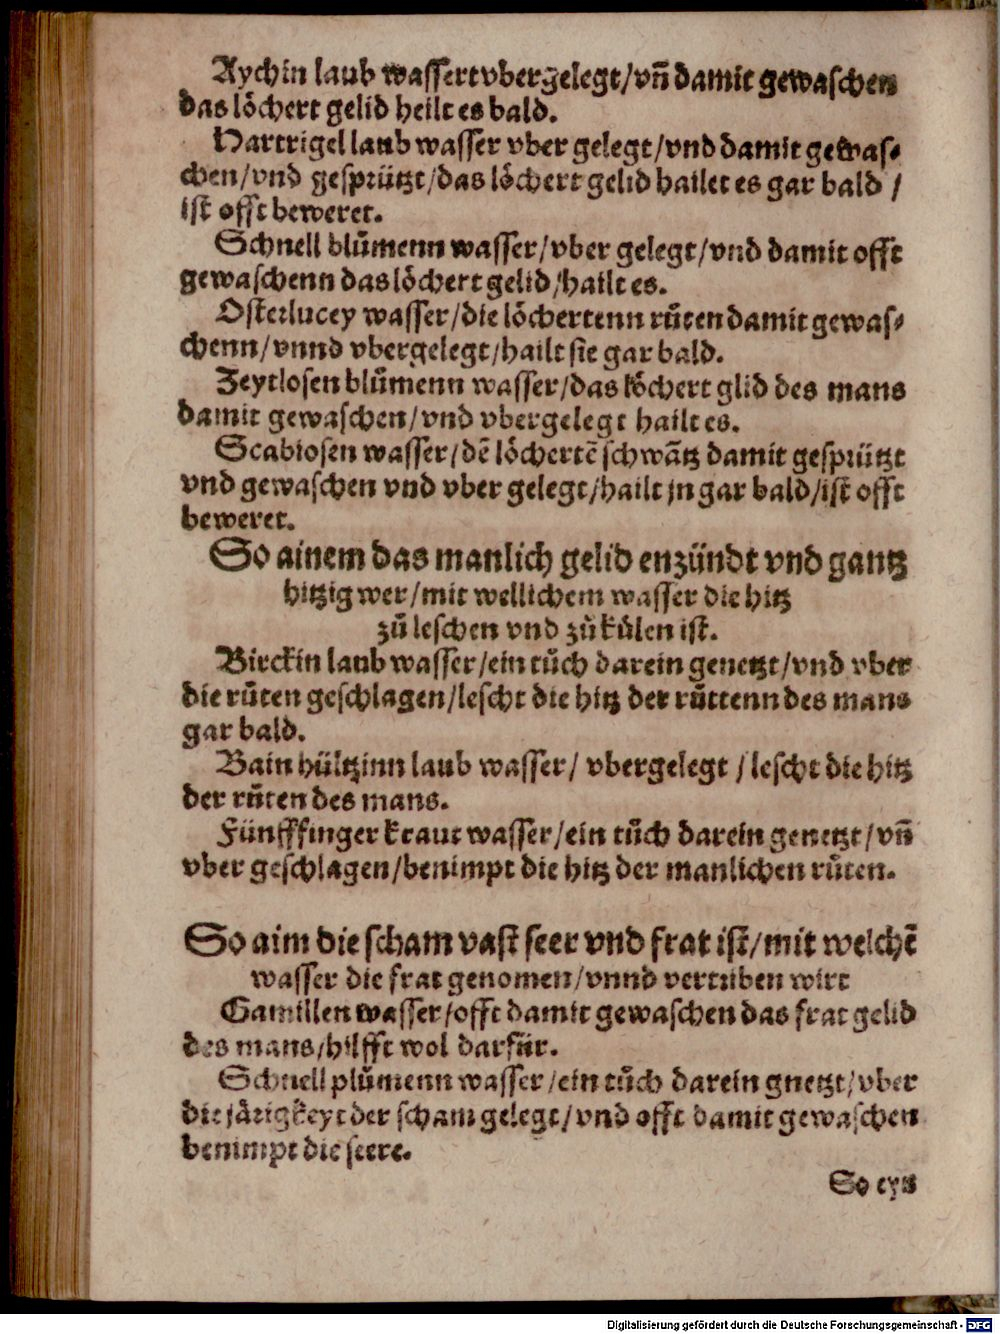 Aychin laub wassert vbergelegt/vn̄ damit gewaschen
das löchert gelid heilt es bald.
Hartrigel laub wasser vber gelegt/vnd damit gewas⸗
chen/vnd gesprützt/das löchert gelid hailet es gar bald /
ist offt beweret.
Schnell blůmenn wasser/vber gelegt/vnd damit offt
gewaschenn das löchert gelid/hailt es.
Osterlucey wasser/die löchertenn růten damit gewas⸗
chenn/vnnd vbergelegt/hailt sie gar bald.
Zeytlosen blůmenn wasser/das löchert glid des mans
damit gewaschen/vnd vbergelegt hailt es.
Scabiosen wasser/dē löchertē schwātz damit gesprützt
vnd gewaschen vnd vber gelegt/hailt jn gar bald/ist offt
beweret.
So ainem das manlich gelid enzündt vnd gantz
hitzig wer/mit wellichem wasser die hitz
zů leschen vnd zů kůlen ist.
Birckin laub wasser/ein tůch darein genetzt/vnd vber
die růten geschlagen/lescht die hitz der růttenn des mans
gar bald.
Bain hültzinn laub wasser/ vbergelegt /lescht die hitz
der růten des mans.
Fünfffinger kraut wasser/ein tůch darein genetzt/vn̄
vber geschlagen/benimpt die hitz der manlichen růten.
So aim die scham vast seer vnd frat ist/mit welchē
wasser die frat genomen/vnnd vertriben wirt
Gamillen wasser/offt damit gewaschen das frat gelid
des mans/hilfft wol darfür.
Schnell plůmenn wasser/ein tůch darein gnetzt/vber
die järigkeyt der scham gelegt/vnd offt damit gewaschen
benimpt die seere.
So eyn
Digitalisierung gefördert durch die Deutsche Forschungsgemeinschaft - DFG